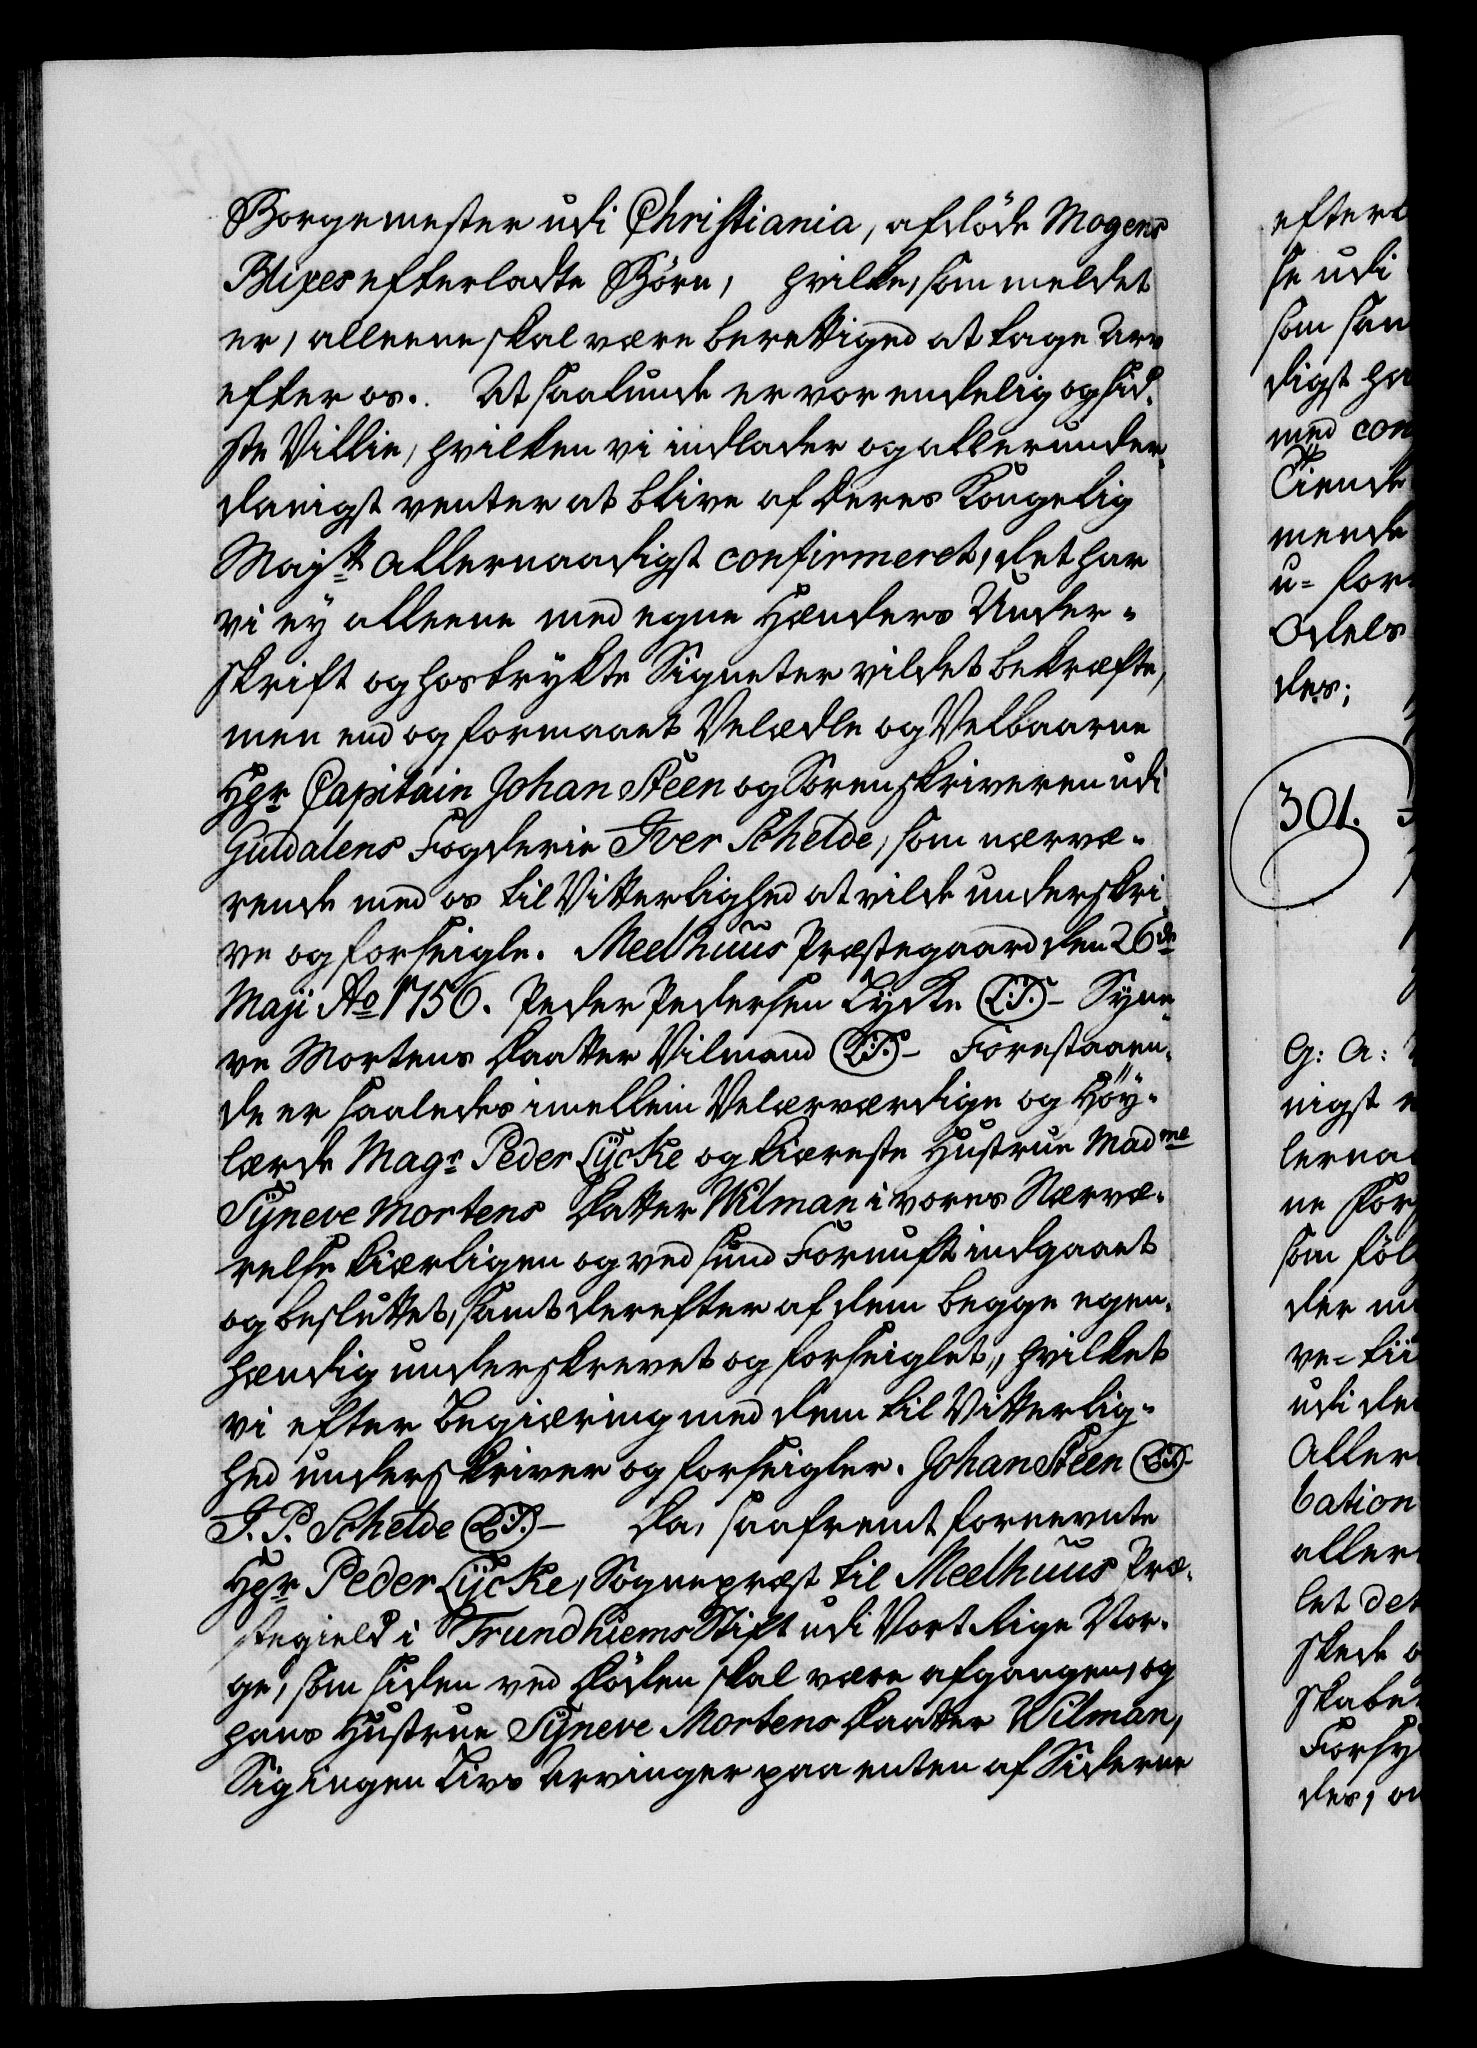 Borgemester udi Christiania, afdöde Mogens
Blixes efterladte Börn, hvilke, som meldet
er, alleene skal være berettiged at tage Arv
efter os. At saalunde er vor endelig og sid-
ste Villie, hvilken vi indlader og allerunder-
danigst venter at blive af Deres Kongelig
Majtt allernaadigst confirmeret, det har
vi ey alleene med egne Hænders Under-
skrift og hostrykte Signeter vildet bekræfte,
men end og formaaet Velædle og Velbaarne
Hgr Capitain Johan Steen og Sorenskriveren udi
Guldalens Fogderie Iver Schelde, som nærvæ-
rende med os til Vitterlighed at vilde underskri-
ve og forseigle. Meelhuus Præstegaard den 26de
Maji Ao 1756. Peder Pedersen Lycke (L.S.) - Syne-
ve Mortens Daatter Vilmand (L.S.) - Forestaaen-
de er saaledes imellem Velærværdige og Höy-
lærde Magr Peder Lycke og Kiæreste Hustrue Madme
Syneve Mortens Datter Wilman i vores Nærvæ-
relse kiærligen og ved sund Fornuft indgaaet
og besluttet, samt derefter af dem begge egen-
hændig underskrevet og forseiglet, hvilket
vi efter Begiæring med dem til Vitterlig-
hed underskriver og forseigler. Johan Steen (L.S.) -
I. P. Schelde (L.S.) - Da, saafremt fornevnte
Hgr Peder Lycke, Sognepræst til Meelhuus Præ-
stegield i Trundhiems Stift udi Vort Rige Nor-
ge, som siden ved Döden skal være afgangen, og
hans Hustrue Syneve Mortens Daatter Wilman,
Sig ingen Livs Arvinger paa enten af Siderne
efterl
se udi
som saa
digst ha
med con
Tiende
mende
u= for
Odels
des;
301.
G: A:
nigst
lernaa
ne For
som föl
der
ve= tii
udi de
Aller
bation
aller
let det
skede
skabe
Forsy
des, o